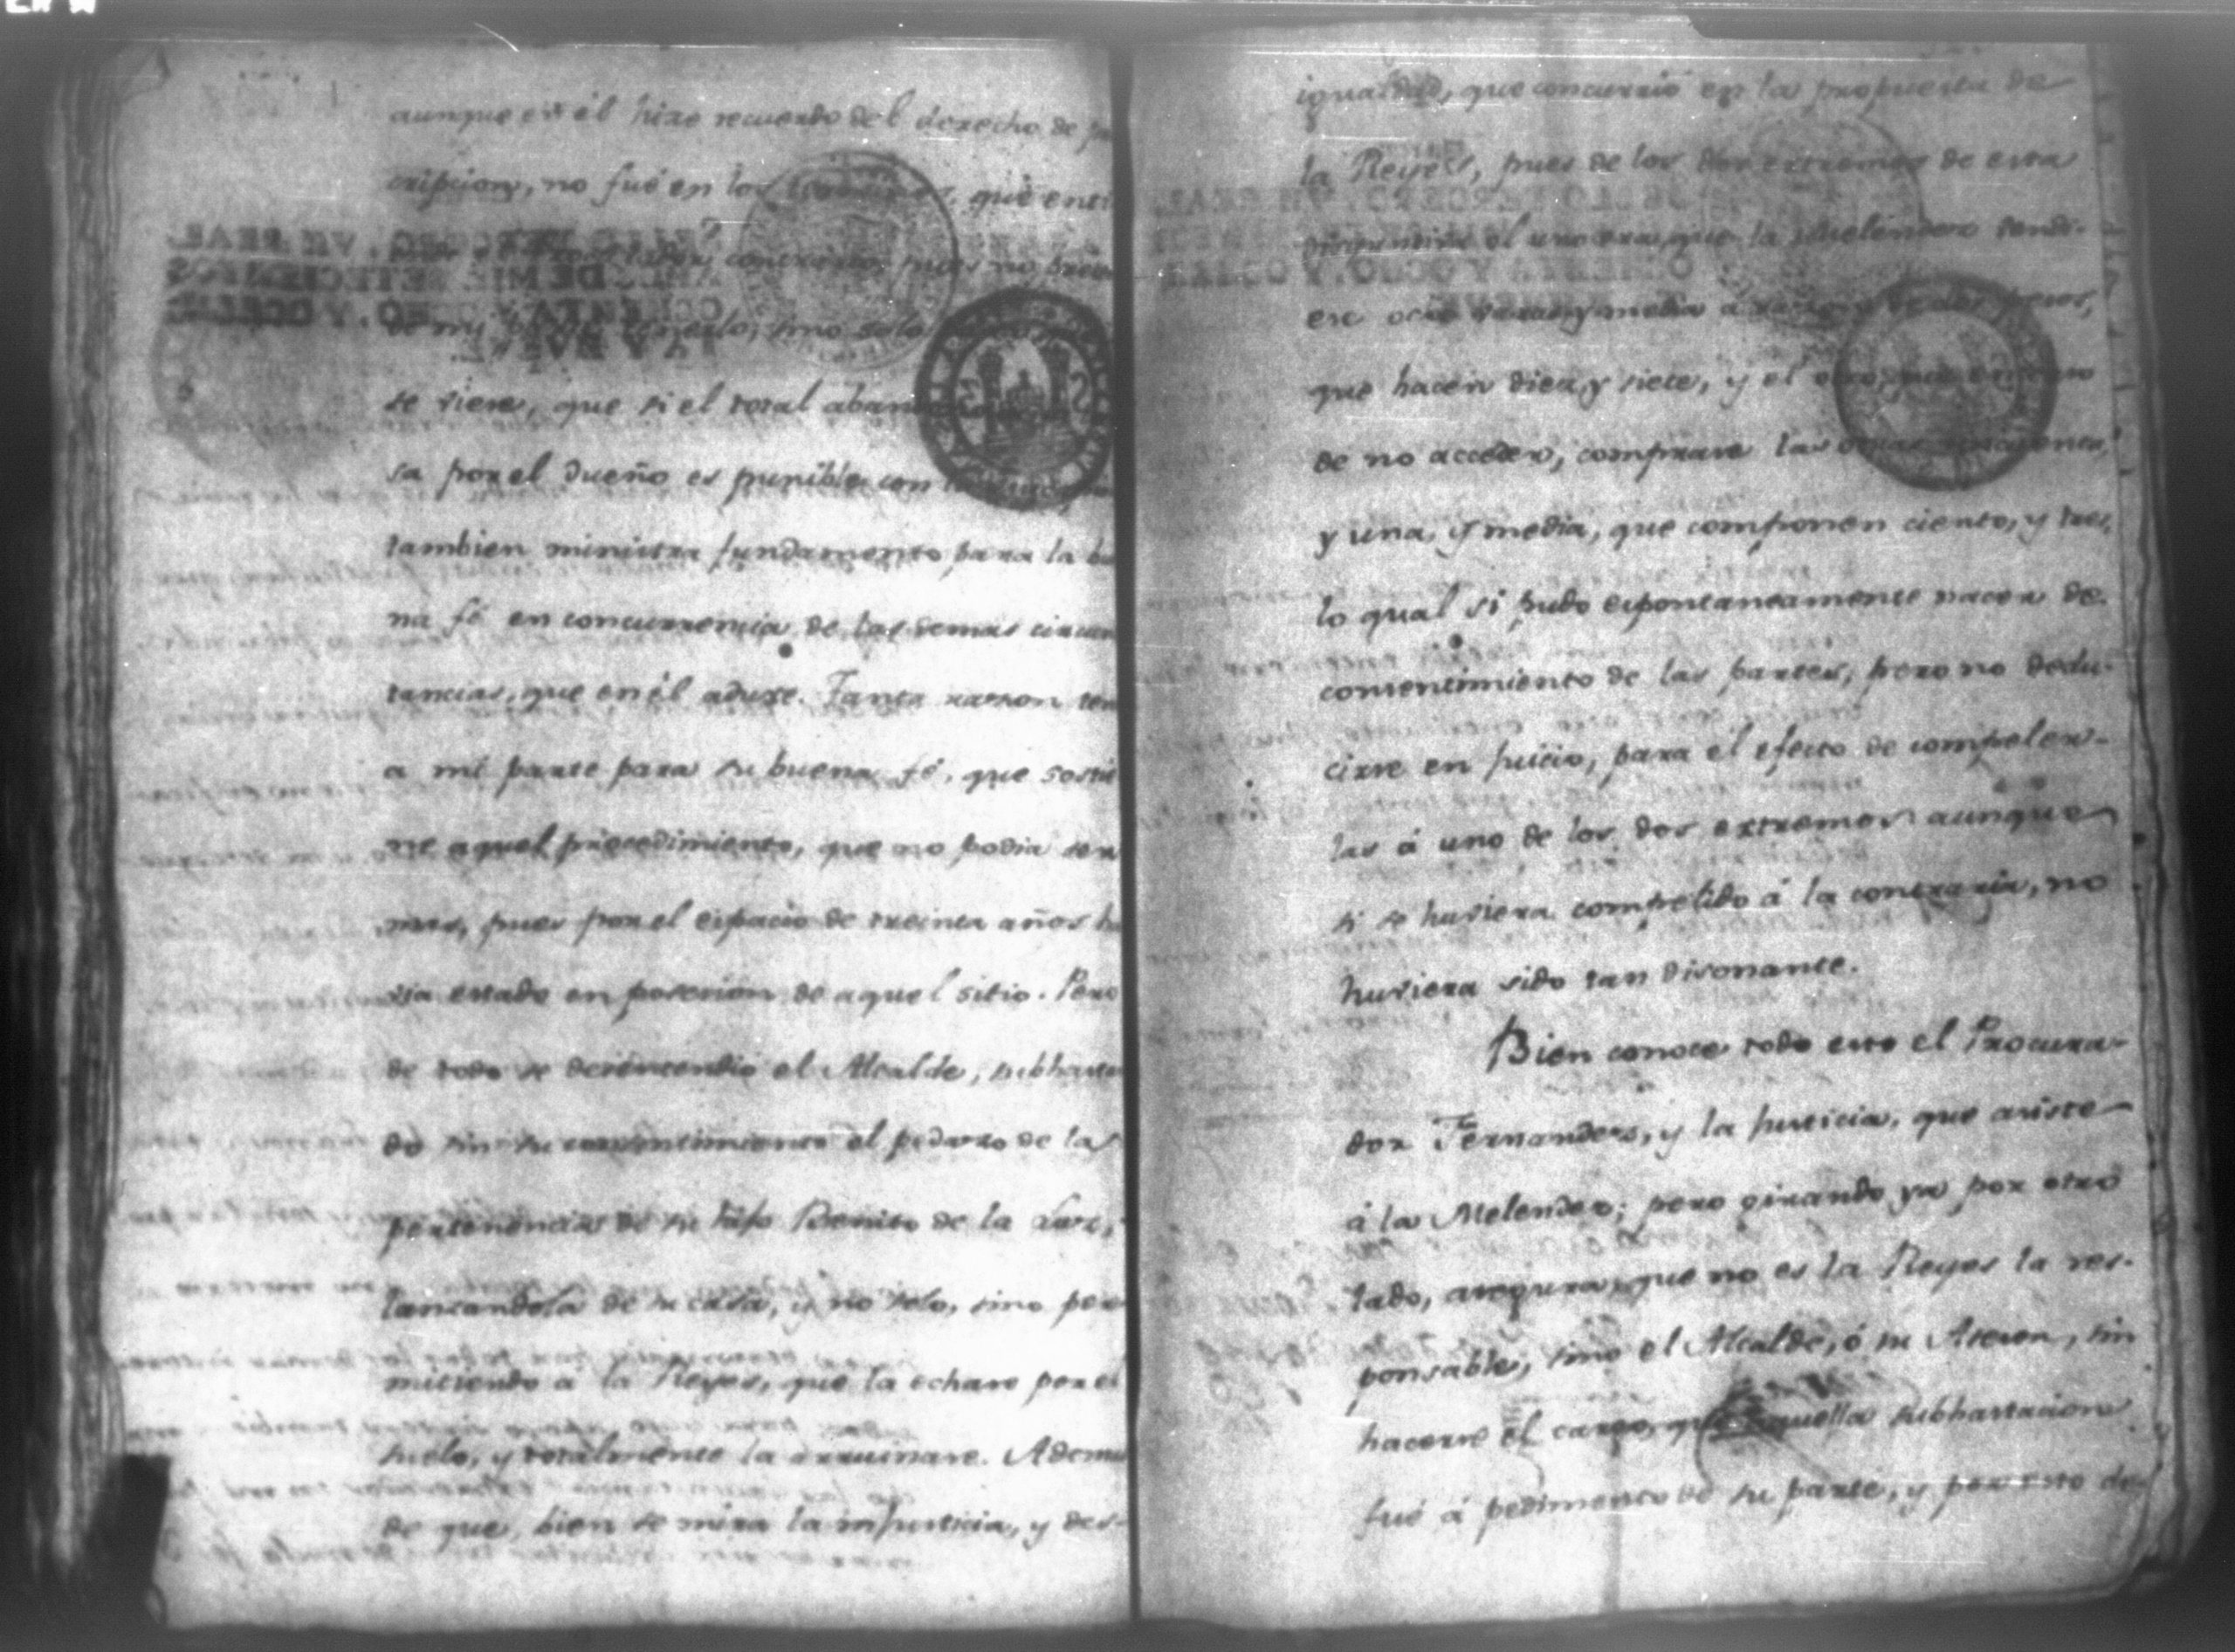 aunque en él hize recuerdo del derecho de
cripcion, no fué en los que enti
contrario, pues no
de mi parte sino solo
se viese, que si el total aban
sa por el dueño es punible con
tambien ministra fundamento para la bu
na fé en concurrencia de las demas circuns
tancias, que en él aduxe. Tanta razon ten
a mi parte para su buena fé, que sostie
ne aquel procedimiento, que no podia ser
menos, pues por el espacio de treinta años ha
via estado en posesion de aquel sitio. Pero
de todo se desentendio el Alcalde, subhastan
do sin su consentimiento el pedazo de las
pertenencias de su hijo Benito de la Luz,
lanzandola de su casa, y no solo, sino per
mitiendo á la Reyes, que la echase por el
suelo, y totalmente la arruinase. Ademas
de que, bien se mira la injusticia, y des-
igualdad, que concurrió en la propuesta de
la Reyes, pues de los dos extremos de esta
el uno era, que la Melendez vendi-
ese ocho varas y media á de dos pesos,
que hacen diez y siete, y el
de no acceder, comprase las
y una, y media, que componen ciento, y tres,
lo qual si pudo espontaneamente nacer de
consentimiento de las partes, pero no dedu-
cirse en juicio, para el efecto de compeler-
las á uno de los dos extremos aunque
si se huviera compelido á la contraria, no
huviera sido tan disonante.
Bien conoce todo esto el Procura-
dor Fernandez, y la justicia, que asiste
á la Melendez; pero girando ya por otro
lado, asegura, que no es la Reyes la res-
ponsable, sino el Alcalde, ó su Asesor, sin
hacerse el cargo, que aquella subhastacion
fué á pedimento de su parte, y por esto de